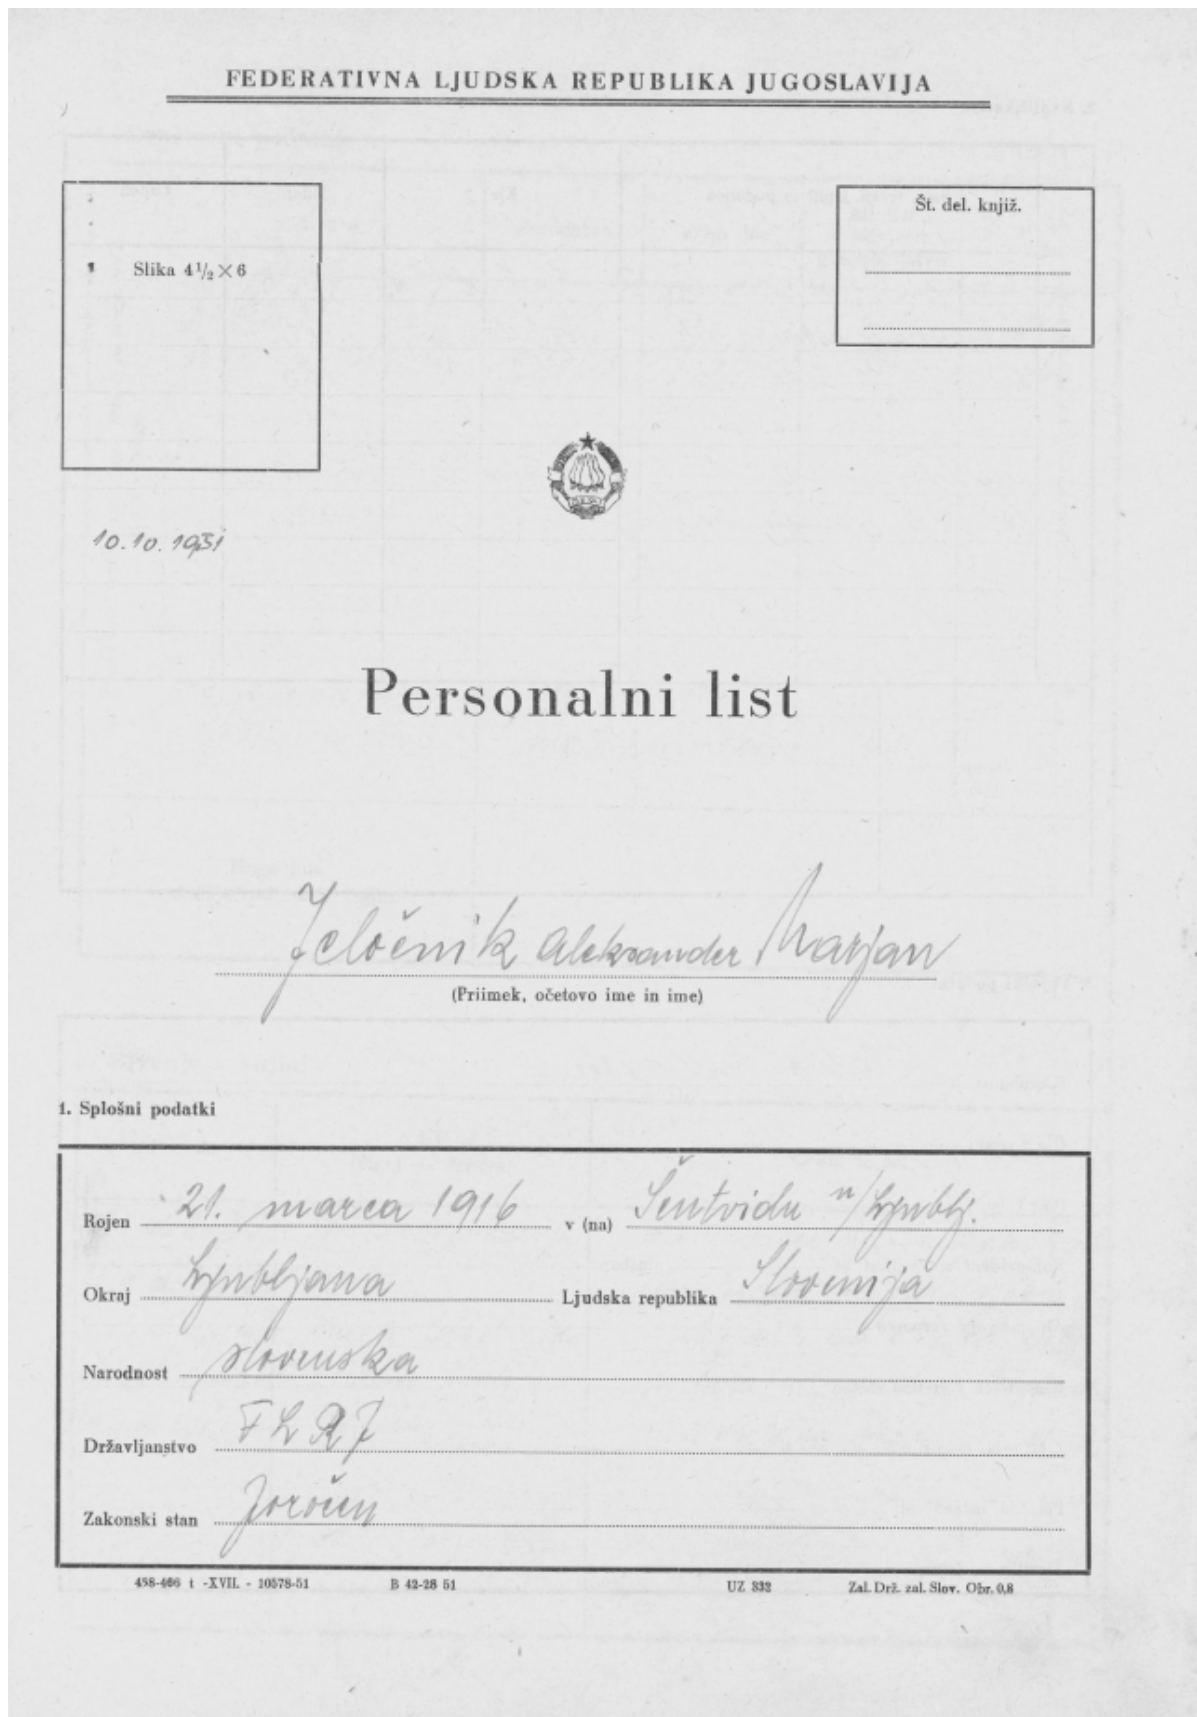 FEDERATIVNA LJUDSKA REPUBLIKA JUGOSLAVIJA
Št. del. knjiž.
Slika 4 1/2 × 6
10.10.1951
Personalni list
Jeločnik Aleksander Marjan
(Priimek, očetovo ime in ime)
1. Splošni podatki
Rojen 21. marca 1916 v (na) Šentvidu n/Ljublj.
Okraj Ljubljana Ljudska republika Slovenija
Narodnost slovenska
Državljanstvo FLRJ
Zakonski stan poročen
458-466 t -XVII. - 10578-51 B 42-28 51 UZ 332 Zal. Drž. zal. Slov. Obr. 0,8